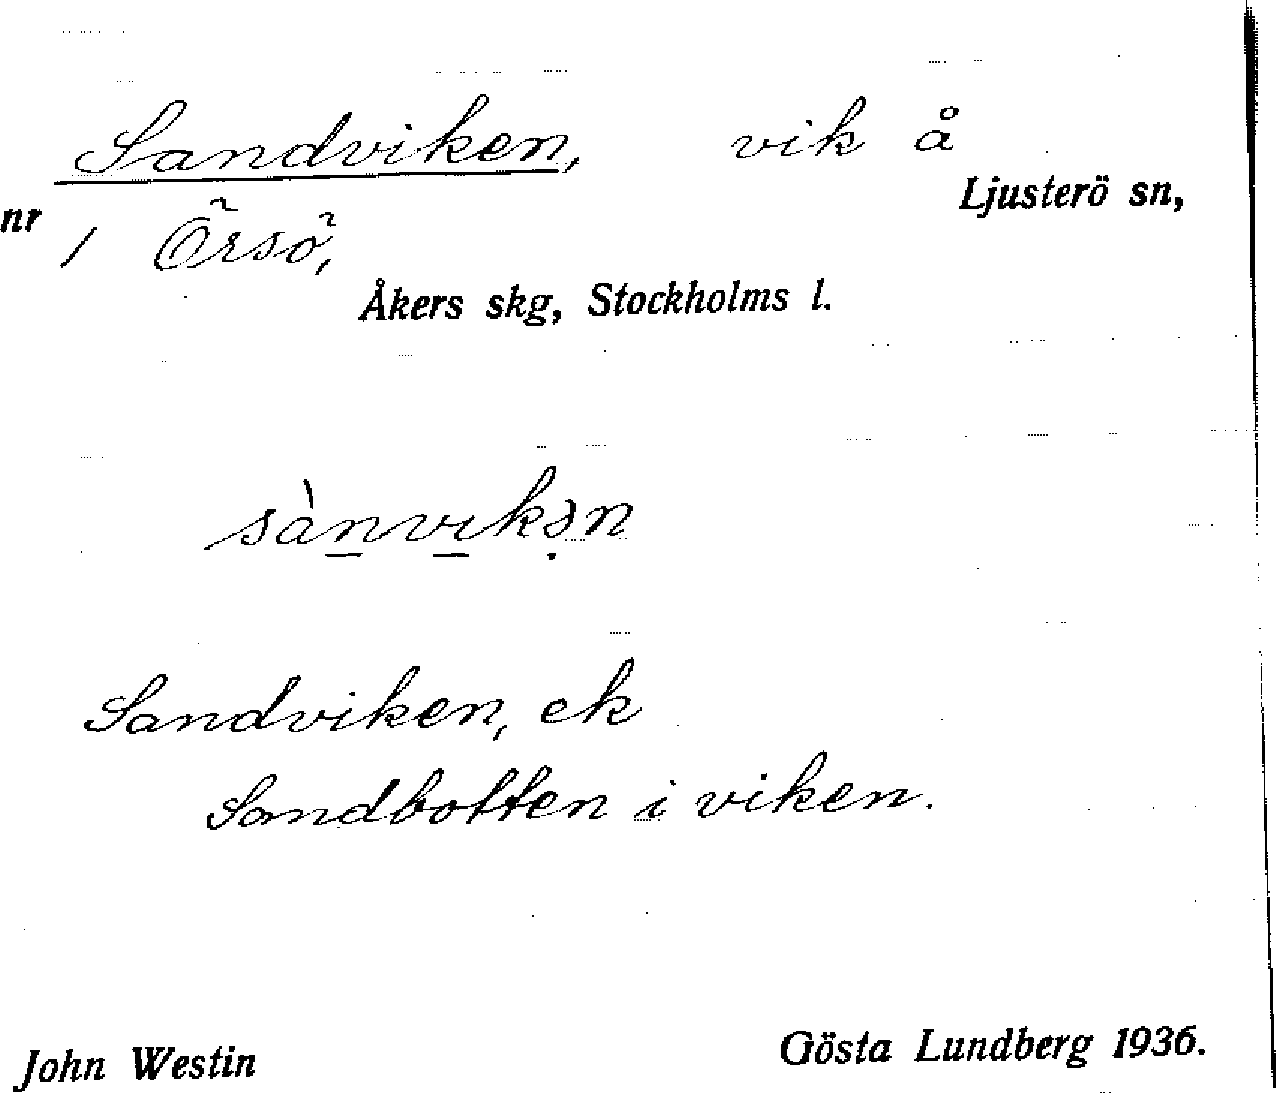 Sandviken, vik å
Ljusterö sn,
nr 1 Örsö,
Åkers skg, Stockholms l.
sànvikən
Sandviken, ek
Sandbotten i viken.
John Westin Gösta Lundberg 1936.